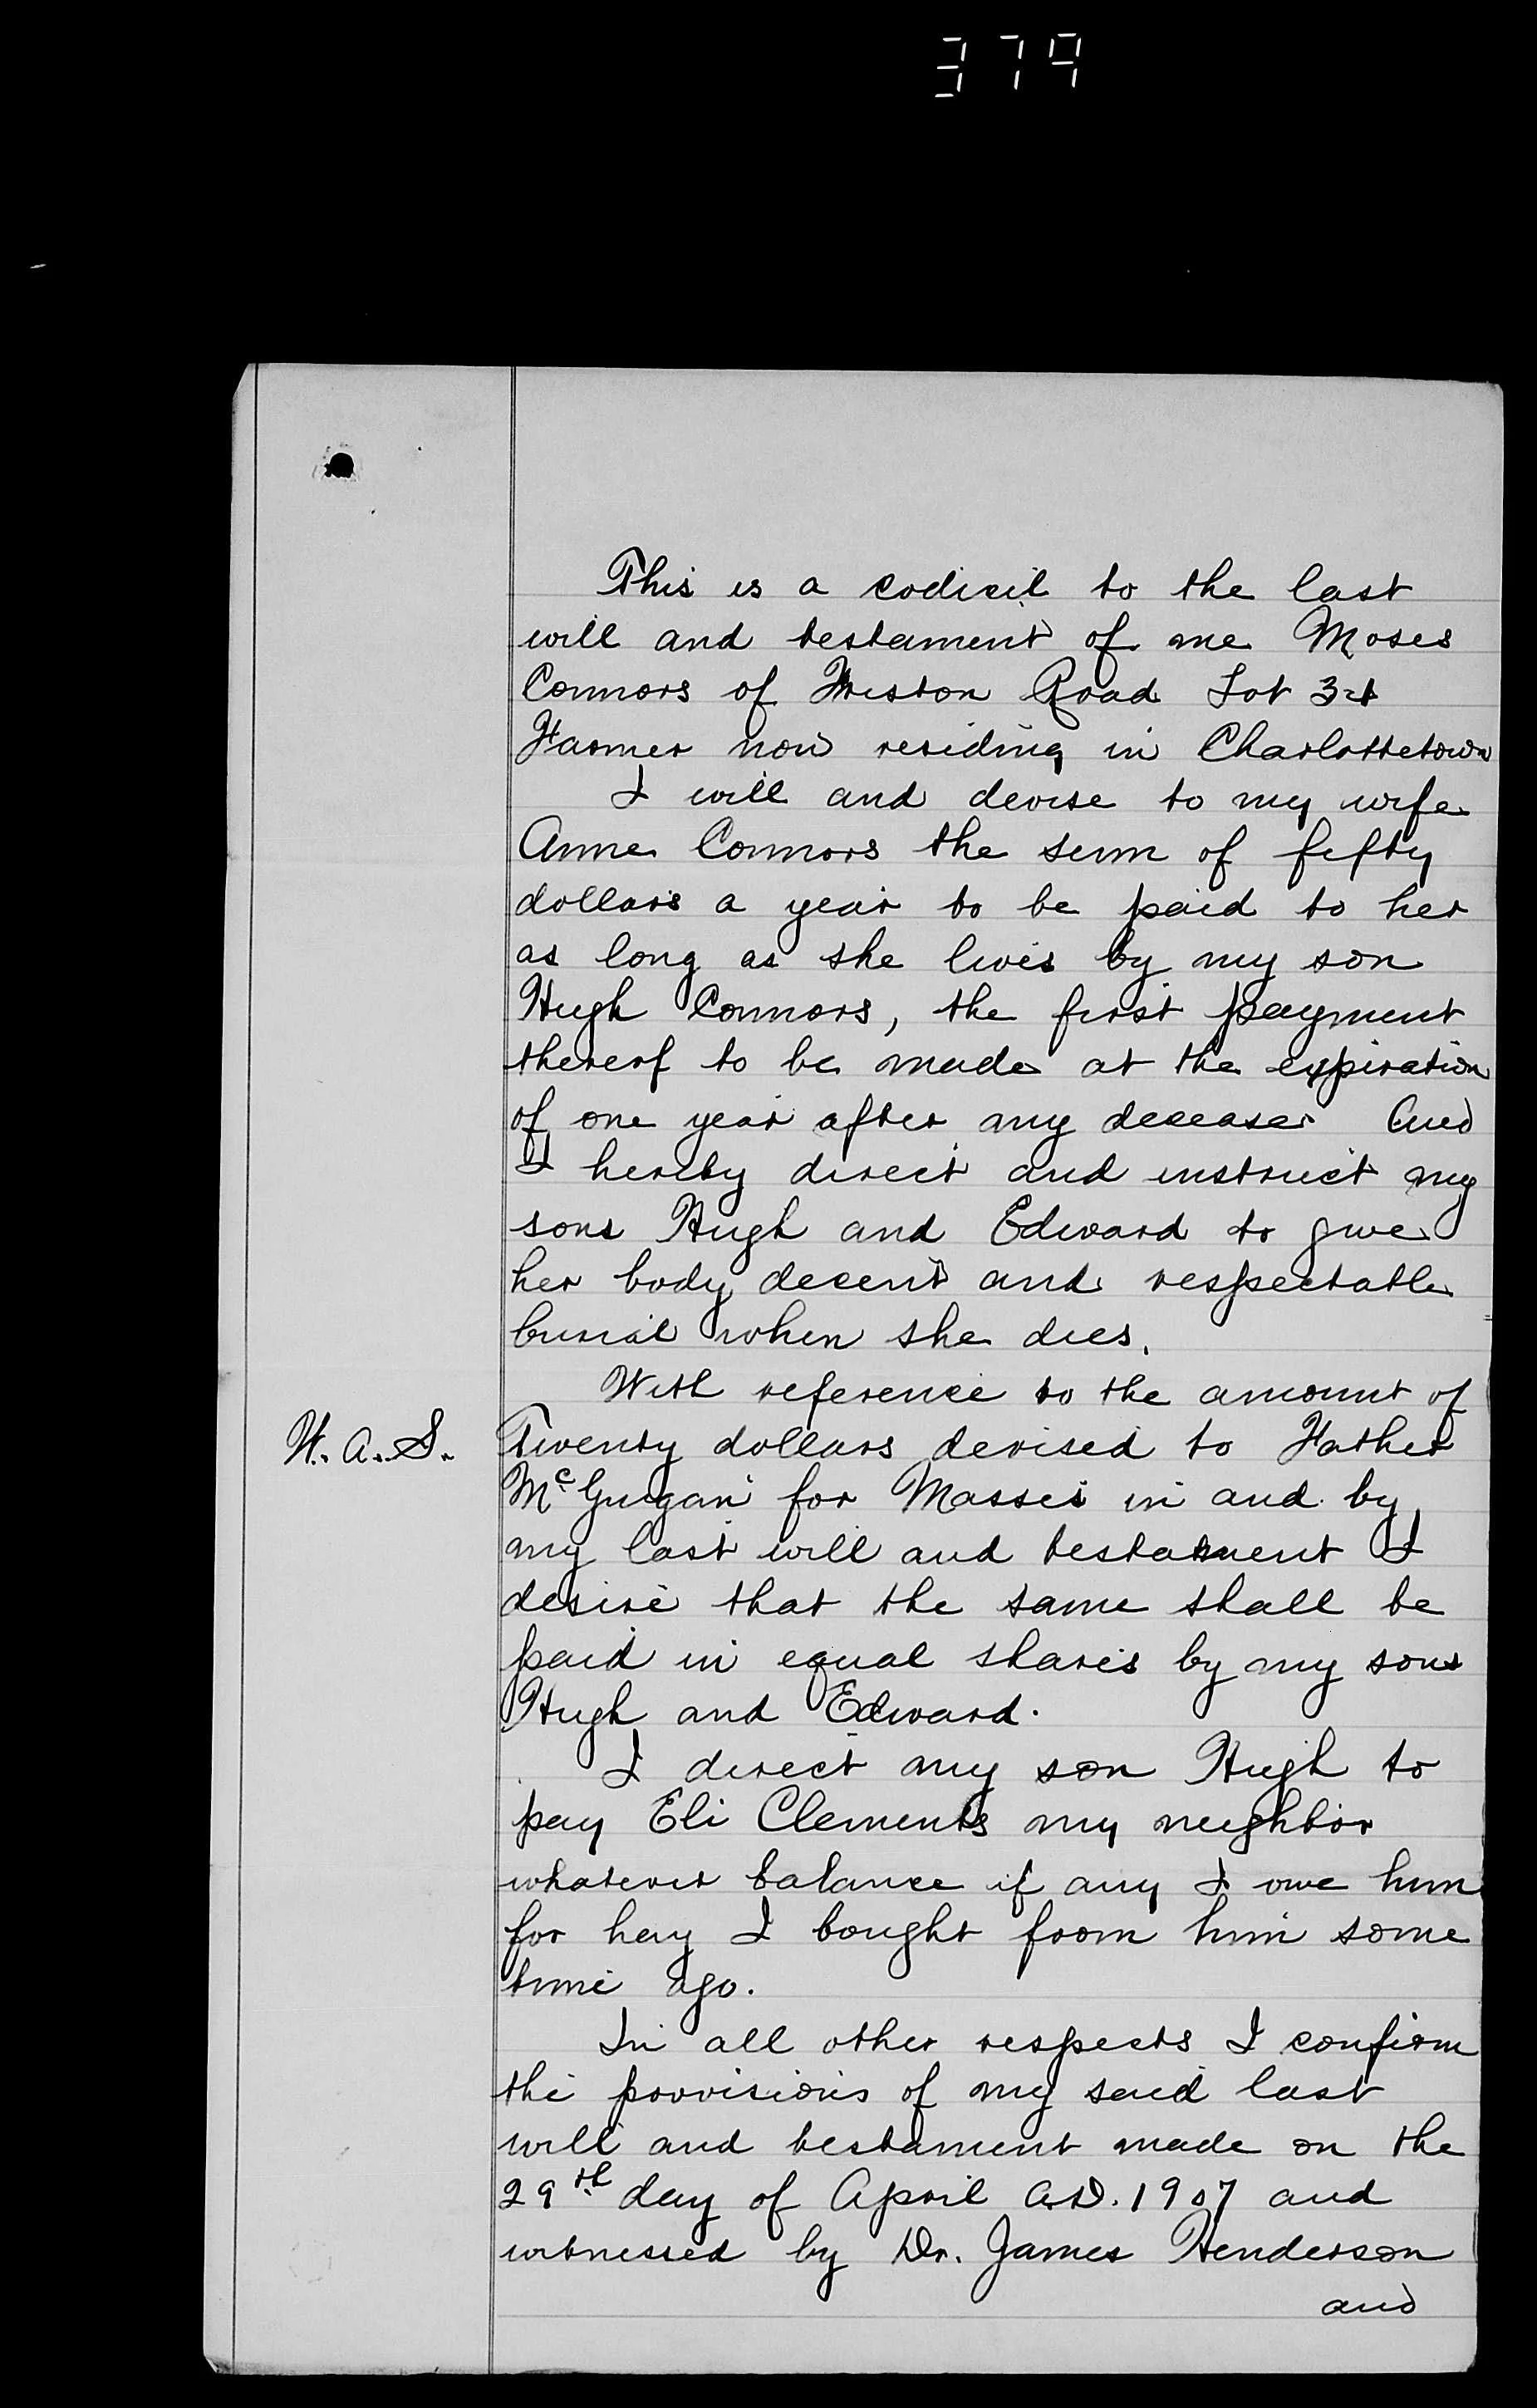 379
This is a codicil to the last
will and testament of me Moses
Connors of Friston Road Lot 35
Farmer now residing in Charlottetown
I will and devise to my wife
Anne Connors the sum of fifty
dollars a year to be paid to her
as long as she lives by my son
Hugh Connors, the first payment
thereof to be made at the expiration
of one year after my decease And
I hereby direct and instruct my
sons Hugh and Edward to give
her body decent and respectable
burial when she dies.
With reference to the amount of
W. A. S.
Twenty dollars devised to Father
McGuigan for Masses in and by
my last will and testament I
desire that the same shall be
paid in equal shares by my sons
Hugh and Edward.
I direct my son Hugh to
pay Eli Clements my neighbor
whatever balance if any I owe him
for hay I bought from him some
time ago.
In all other respects I confirm
the provisions of my said last
will and testament made on the
29th day of April A.D. 1907 and
witnessed by Dr. James Henderson
and